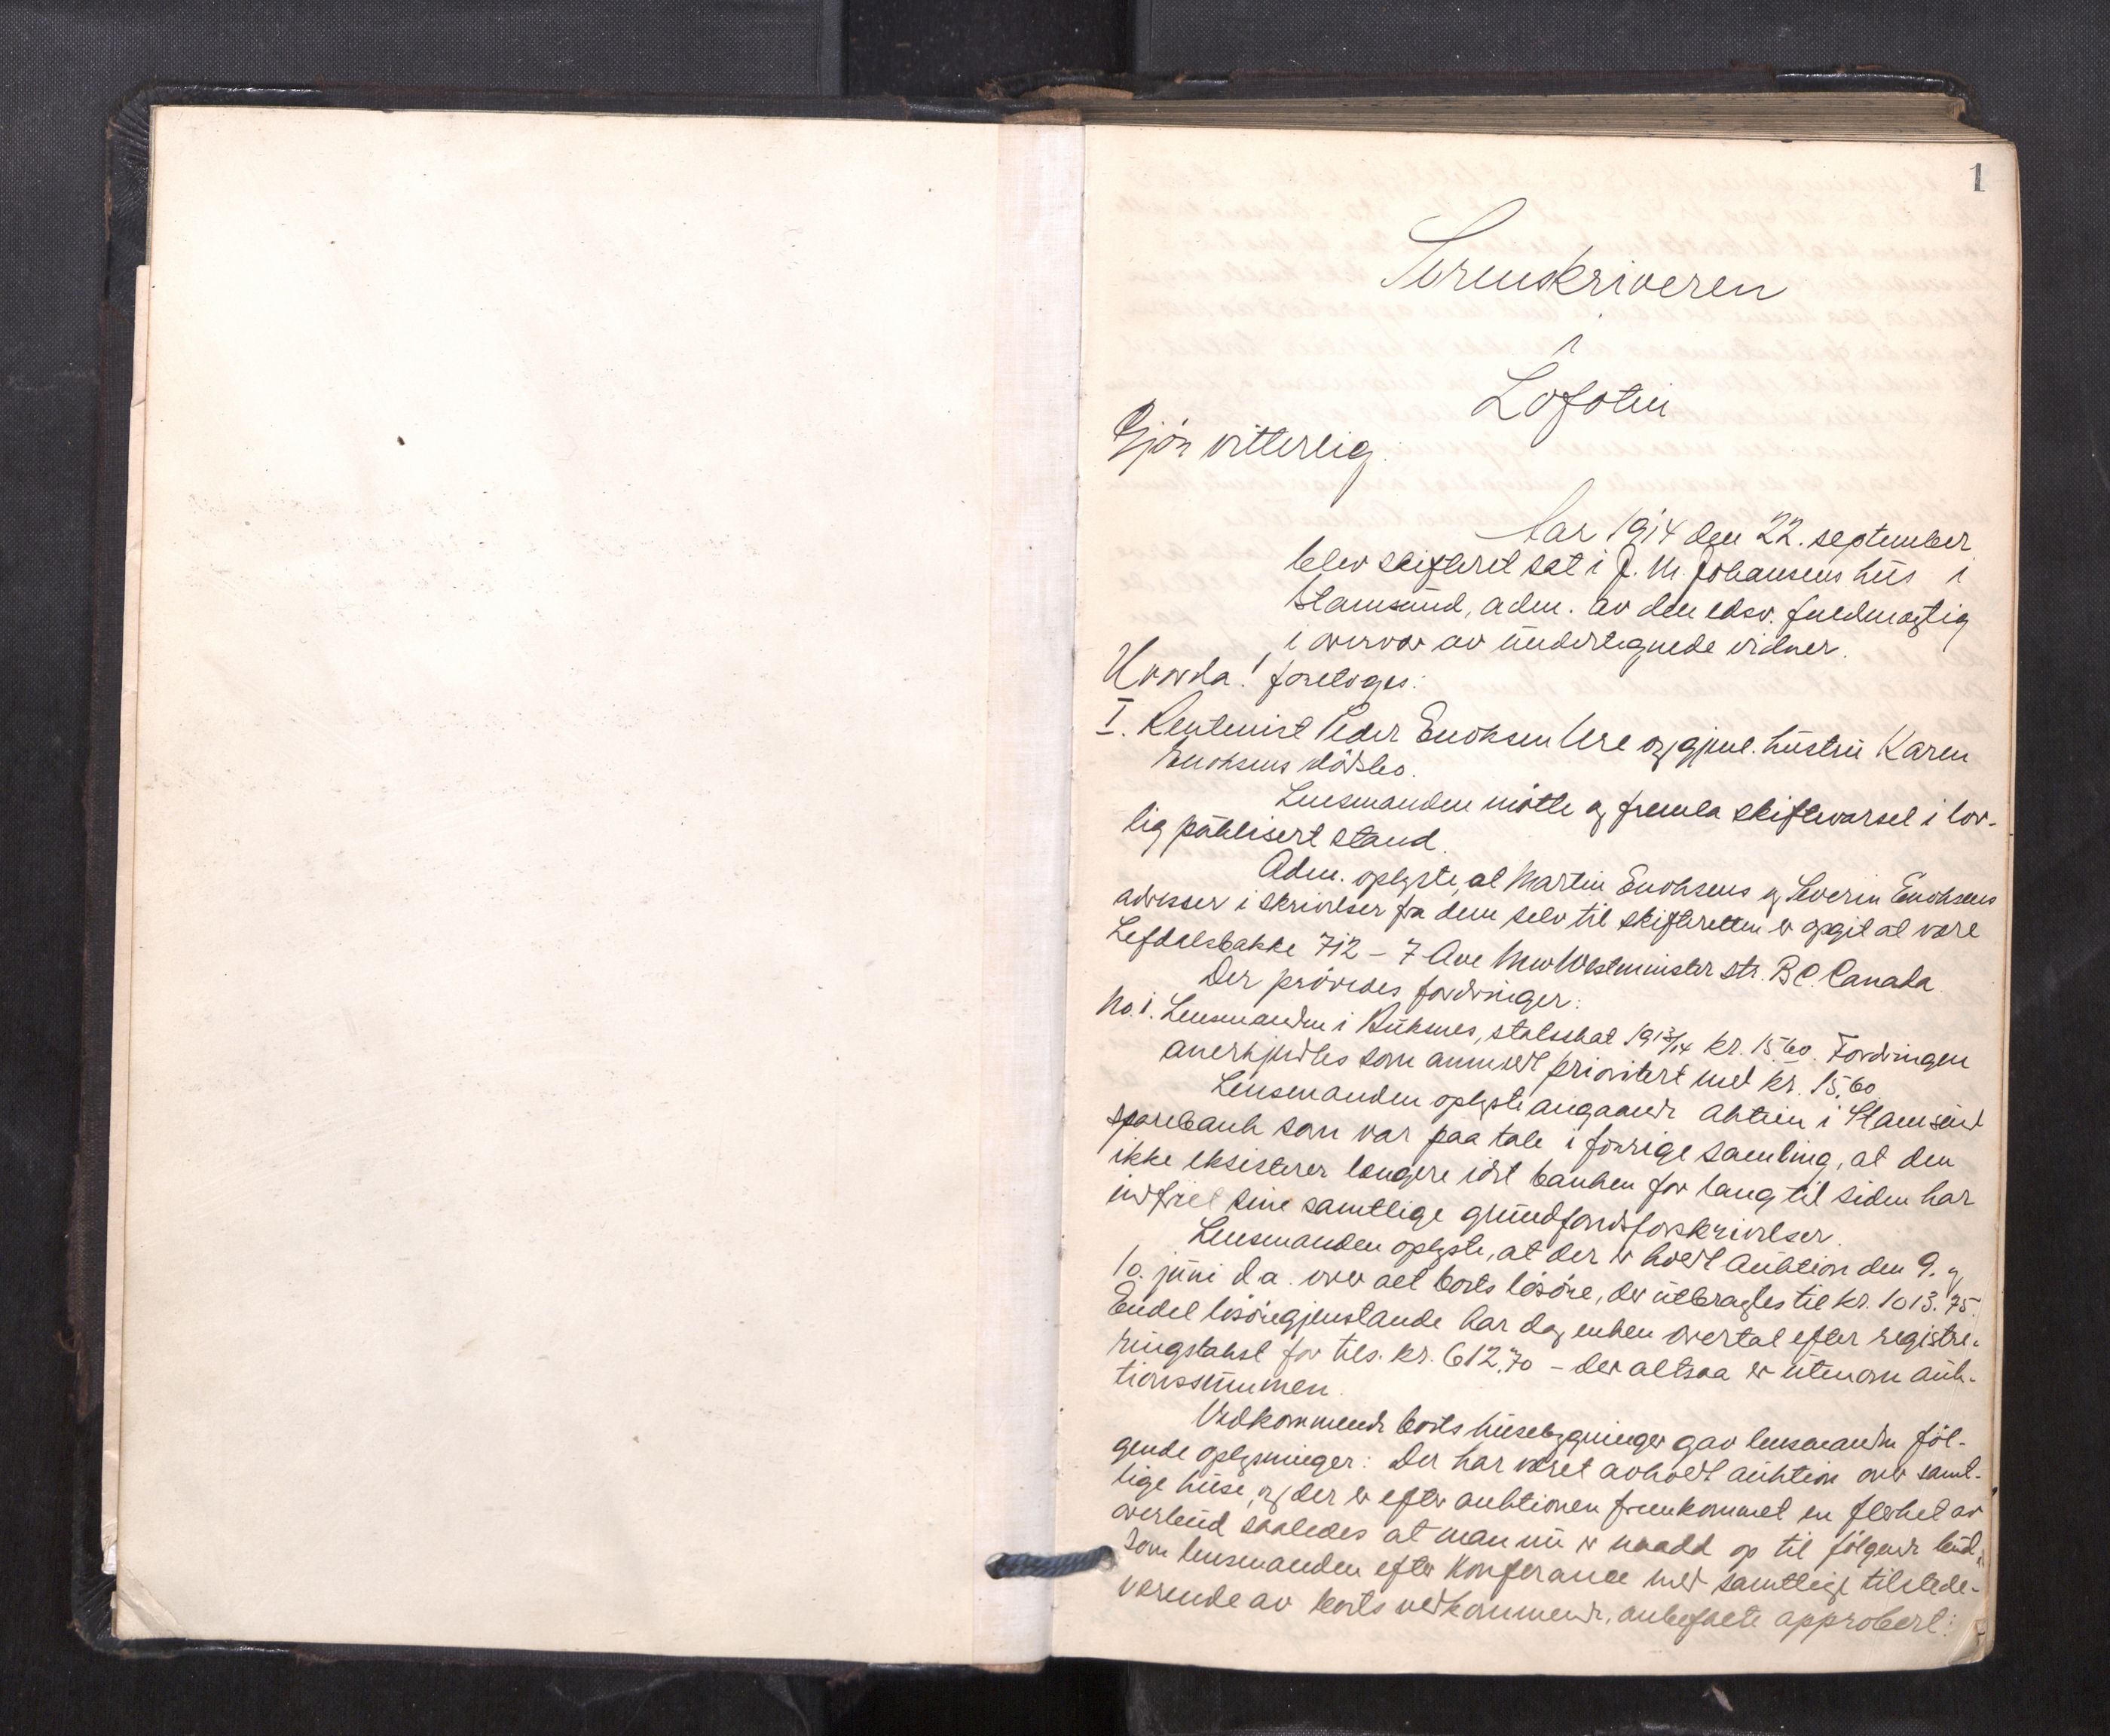 1
Sorenskriveren
i
Lofoten
Gjør vitterlig:
Aar 1914 den 22. september
blev skifteret sat i J. M. Johansens hus i
Stamsund, adm. av den edsv. fuldmægtig
i overvær av undertegnede vidner.
Hvorda! foretoges:
I. Rentenist Peder Enoksen Ure og gjenl. hustru Karen
Enoksens dødsbo.
Lensmanden møtte og fremla skiftevarsel i lov-
lig publisert stand.
Adm. oplyste, at Martin Enoksens og Severin Enoksens
adresser i skrivelser fra dem selv til skifteretten er opgit at være
Lefdalsbakke 712 - 7 Ave New Westminister str. B C. Canada
Der prøvedes fordringer:
No. 1. Lensmanden i Buksnes, statsskat 1913/14 kr. 15.60. Fordringen
anerkjendtes som anmeldt prioritert med kr. 15.60.
Lensmanden oplyste angaaende aktien i Stamsund
sparebank som var paa tale i forrige samling, at den
ikke eksisterer længere idet banken for lang tid siden har
indfriet sine samtlige grundfondsforskrivelser.
Lensmanden oplyste, at der er holdt auktion den 9. og
10. juni d.a. over alt boets løsøre, der utbragtes til kr. 1013.75.
Endel løsøregjenstande har dog enken overtat efter registre-
ringstakst for tils. kr. 612.70 - der altsaa er utenom auk-
tionssummen.
Vedkommende boets husebygninger gav lensmanden føl-
gende oplysninger: Der har været avholdt auktion over samt-
lige huse, og der er efter auktionen fremkommet en flerhet av
overbud saaledes at man nu er naadd op til følgende bud,
som lensmanden efter konferance med samtlige tilstede-
værende av boets vedkommende, anbefalte approbert: